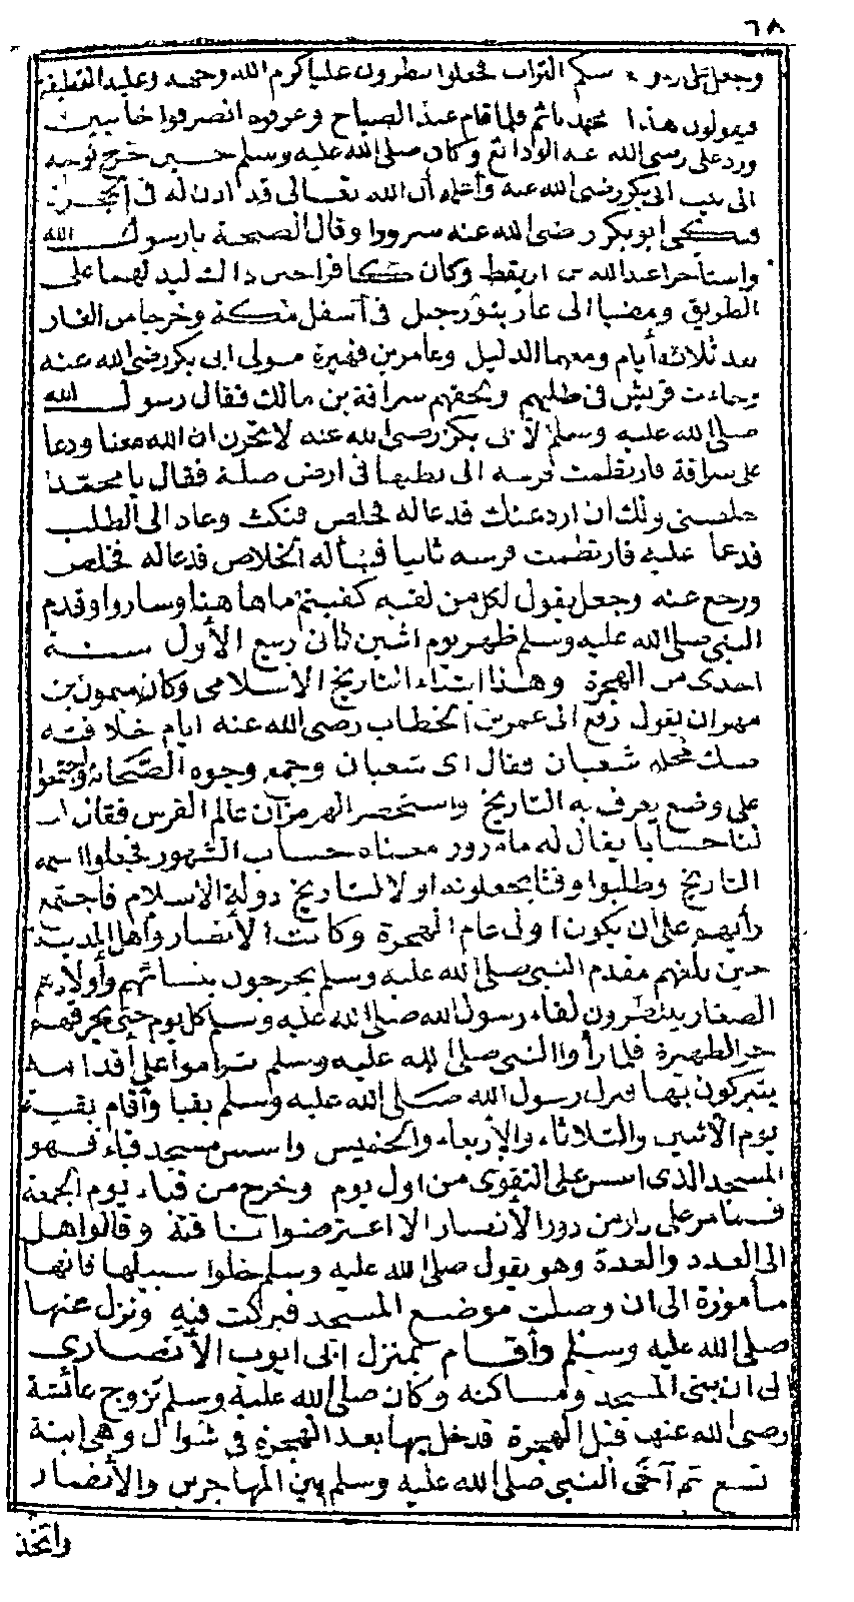 ٦٨
وجعل على رءوسهم التراب فجعلوا ينظرون عليا كرم الله وجهه وعليه القطيفة
فيقولون هذا محمد نائم فلما قام عند الصباح وعرفوه انصرفوا خائبين
ورد على رضى الله عنه الودائع وكان صلى الله عليه وسلم حسين خرج توجه
الى بيت ابى بكر رضى الله عنه وأعلمه أن الله تعالى قد اذن له فى الهجرة
فبكى ابو بكر رضى الله عنه سرورا وقال الصحبة يا رسول الله
واستأجرا عبد الله بن اريقط وكان كافرا جيرا ليدلهما على
الطريق ومضيا الى غار بثور جبل فى أسفل مكة وخرجا من الغار
بعد ثلاثه أيام ومعهما الدليل وعامر بن فهيرة مولى ابى بكر رضى الله عنه
وجاءت قريش فى طلبهم ولحقهم سراقة بن مالك فقال رسول الله
صلى الله عليه وسلم لأبى بكر رضى الله عنه لا تحزن ان الله معنا ودعا
على سراقة فارتطمت فرسه الى بطنها فى ارض صلبة فقال يا محمد
خلصنى ولك ان ارد عنك فدعا له فخلص فنكث وعاد الى الطلب
فدعا عليه فارتطمت فرسه ثانيا فسأله الخلاص فدعا له فخلص
ورجع عنه وجعل يقول لكل من لقيه كفيتم ما هاهنا وساروا وقدم
النبى صلى الله عليه وسلم ظهر يوم اثنين ثانى ربيع الأول سنة
احدى من الهجرة وهذا ابتداء التاريخ الاسلامى وكان ميمون بن
مهران يقول رفع الى عمر بن الخطاب رضى الله عنه ايام خلافته
صك محله شعبان فقال اى شعبان وجمع وجوه الصحابة واجتمعوا
على وضع يعرف به التاريخ واستحضر الهرمزان عالم الفرس فقال ان
لنا حسابا يقال له ماه روز معناه حساب الشهور فجعلوا اسمه
التاريخ وطلبوا وقتا يجعلونه اولا لتاريخ دولة الاسلام فاجتمع
رأيهم على أن يكون اول عام الهجرة وكانت الأنصار وأهل المدينة
حين بلغهم مقدم النبى صلى الله عليه وسلم يخرجون بنسائهم وأولادهم
الصغار ينتظرون لقاء رسول الله صلى الله عليه وسلم كل يوم حتى يحرقهم
حر الظهيرة فلما رأوا النبى صلى الله عليه وسلم تراموا على أقدامه
يتبركون بها فنزل رسول الله صلى الله عليه وسلم بقبا وأقام بقية
يوم الاثنين والثلاثاء والاربعاء والخميس واسس مسجد قباء فهو
المسجد الذى اسس على التقوى من اول يوم وخرج من قباء يوم الجمعة
فما مر على دار من دور الأنصار الا اعترضوا ناقته وقالوا هل
الى العدد والعدة وهو يقول صلى الله عليه وسلم خلوا سبيلها فانها
مأمورة الى ان وصلت موضع المسجد فبركت فيه ونزل عنها
صلى الله عليه وسلم وأقام بمنزل ابى ايوب الأنصارى
الى ان بنى المسجد ومساكنه وكان صلى الله عليه وسلم تزوج عائشة
رضى الله عنها قبل الهجرة فدخل بها بعد الهجرة فى شوال وهى ابنة
تسع ثم آخى النبى صلى الله عليه وسلم بين المهاجرين والأنصار
واتخذ